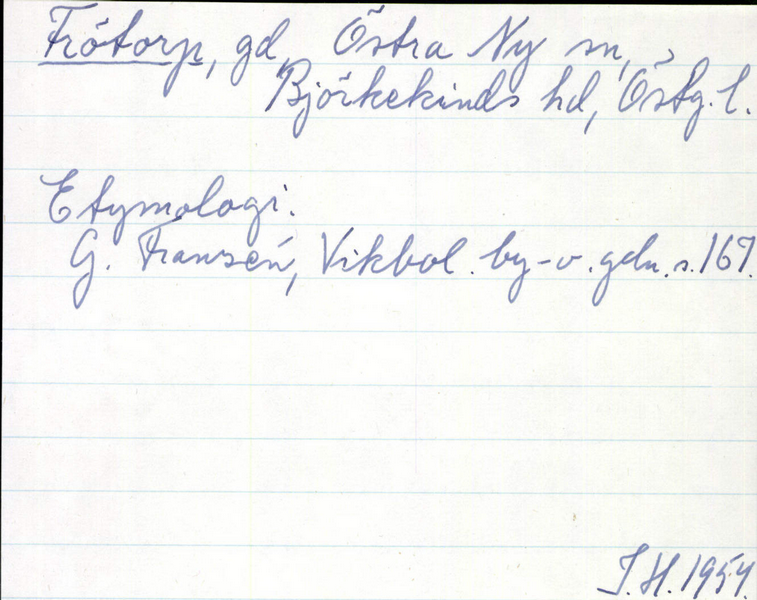 Frötorp, gd, Östra Ny sn,
Björkekinds hd, Östg. l.
Etymologi.
G. Franzén, Vikbol. by- o. gdn. s. 167.
J. H. 1954.